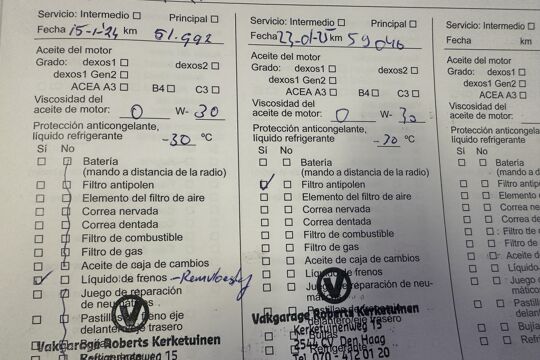 Servicio: Intermedio Principal
Fecha 15-1-24 km 51.992
Aceite del motor
Grado: dexos1 dexos2
dexos1 Gen2
ACEA A3 B4 C3
Viscosidad del
aceite de motor: 0 W- 30
Protección anticongelante,
líquido refrigerante -30 °C
Sí No
Batería
(mando a distancia de la radio)
Filtro antipolen
Elemento del filtro de aire
Correa nervada
Correa dentada
Filtro de combustible
Filtro de gas
Aceite de caja de cambios
Líquido de frenos
Juego de reparación
de neumáticos
Pastillas de freno eje
delantero/eje trasero
Vakgarage Roberts Kerketuinen
Kerketuinenweg 15
Servicio: Intermedio Principal
Fecha 23-01-25 km 59046
Aceite del motor
Grado: dexos1 dexos2
dexos1 Gen2
ACEA A3 B4 C3
Viscosidad del
aceite de motor: 0 W- 30
Protección anticongelante,
líquido refrigerante -30 °C
Sí No
Batería
(mando a distancia de la radio)
Filtro antipolen
Elemento del filtro de aire
Correa nervada
Correa dentada
Filtro de combustible
Filtro de gas
Aceite de caja de cambios
Líquido de frenos
Juego de reparación
de neu-
máticos
Vakgarage Roberts Kerketuinen
Kerketuinenweg 15
2544 CV Den Haag
Tel. 070-412 01 20
Servicio: Intermedio
Fecha km
Aceite del motor
Grado: dexos1
dexos1 Gen2
ACEA A3
Viscosidad del
aceite de motor:
Protección anticon
líquido refrigerante
Sí No
Batería
(mando a d
Filtro antip
Elemento
Correa ne
Correa de
Filtro de c
Filtro de g
Aceite de
Líquido
Juego de
máticos
Pastill
delant
Bujía
Refri